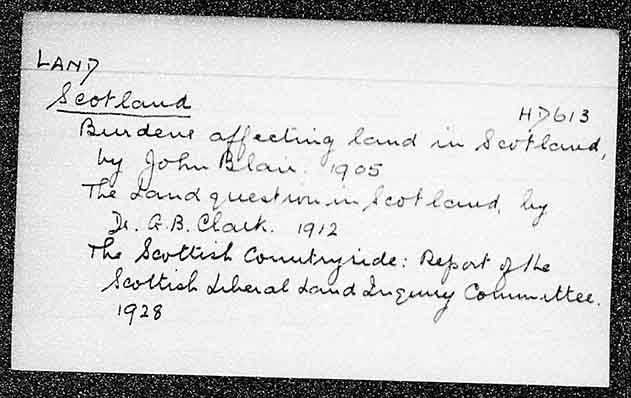 LAND
Scotland
HD613
Burdens affecting land in Scotland,
by John Blair. 1905
The Land question in Scotland, by
Dr. G.B. Clark. 1912
The Scottish Countryside: Report of the
Scottish Liberal Land Inquiry Committee.
1928